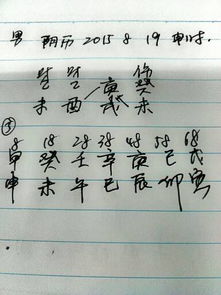 男 阴历 2015 8 19 申时.
财 财 伤
乙 乙 庚 癸
未 酉 戌 未
⑤
8 18 28 38 48 58 68
甲 癸 壬 辛 庚 己 戊
申 未 午 巳 辰 卯 寅